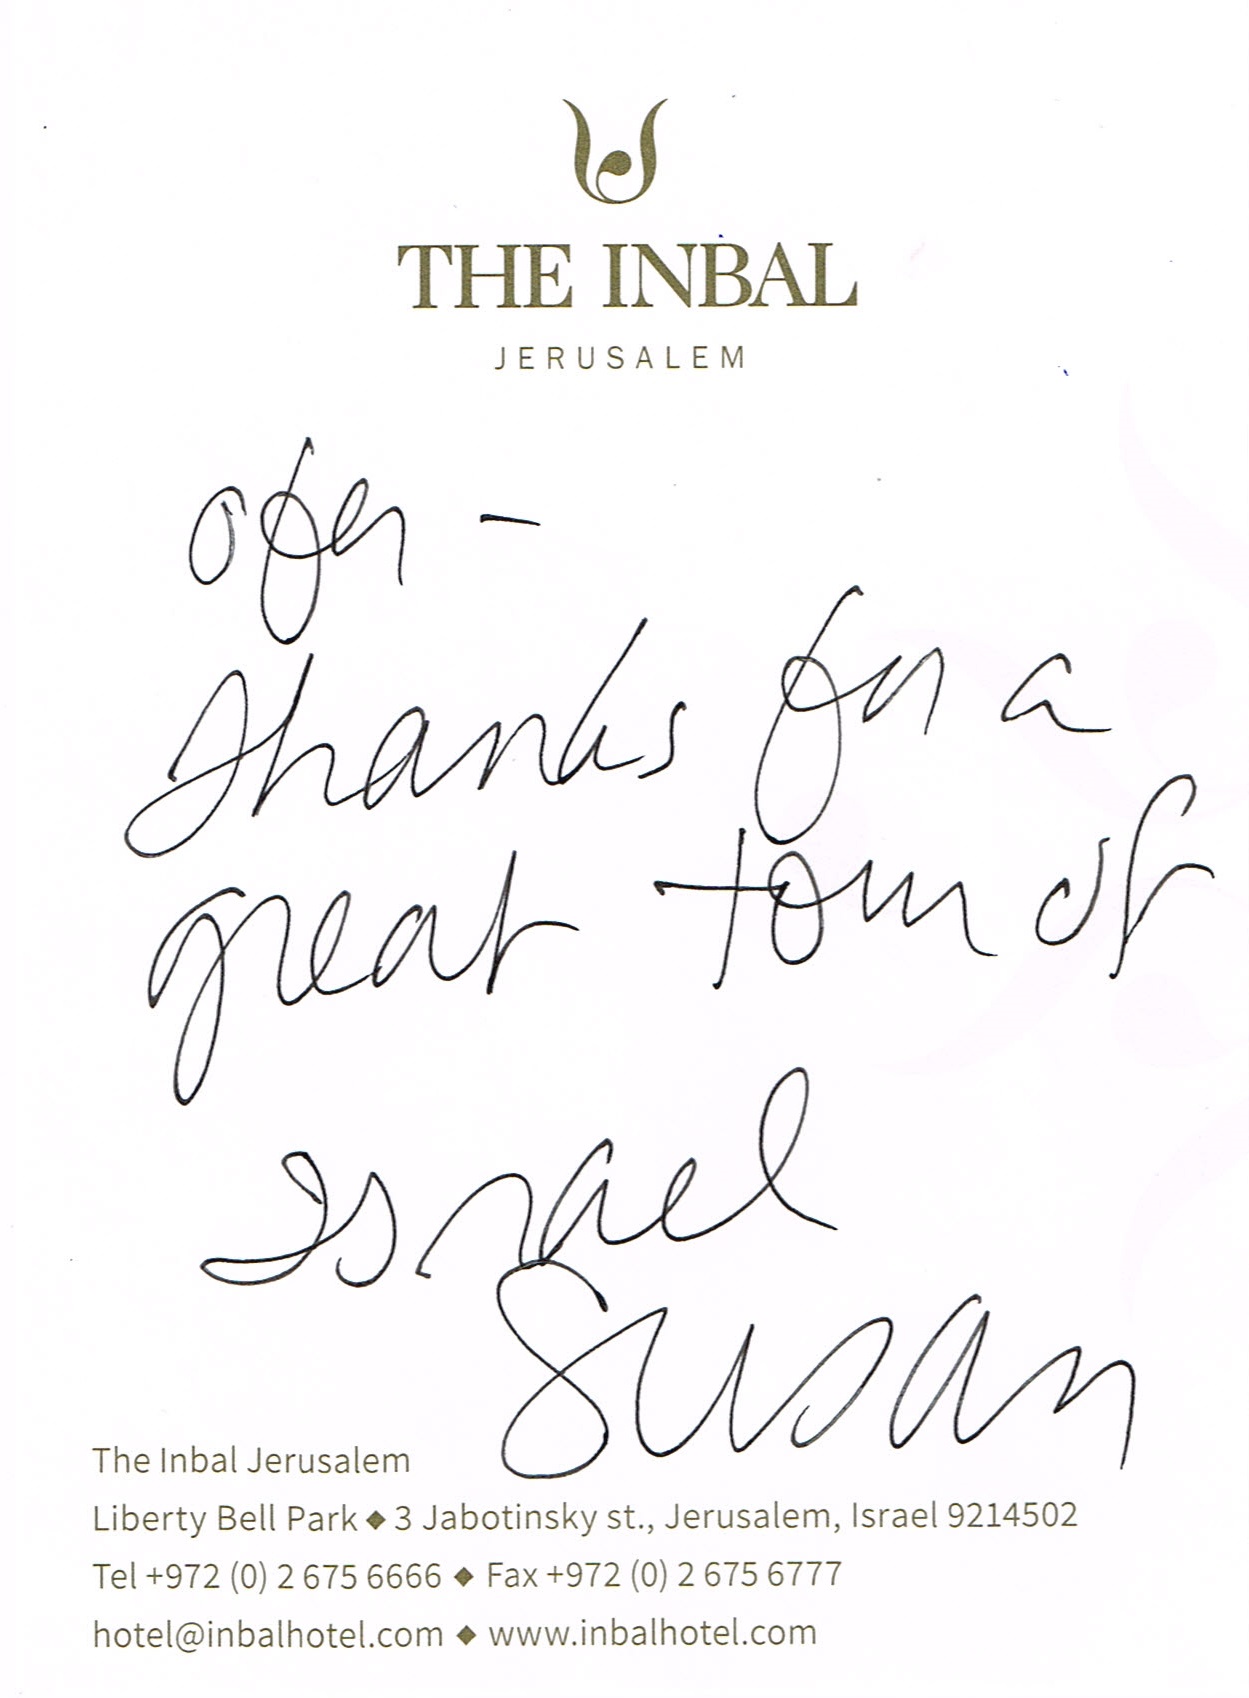 THE INBAL
JERUSALEM
Ofer -
thanks for a
great tour of
Israel
Susan
The Inbal Jerusalem
Liberty Bell Park ◆ 3 Jabotinsky st., Jerusalem, Israel 9214502
Tel +972 (0) 2 675 6666 ◆ Fax +972 (0) 2 675 6777
hotel@inbalhotel.com ◆ www.inbalhotel.com